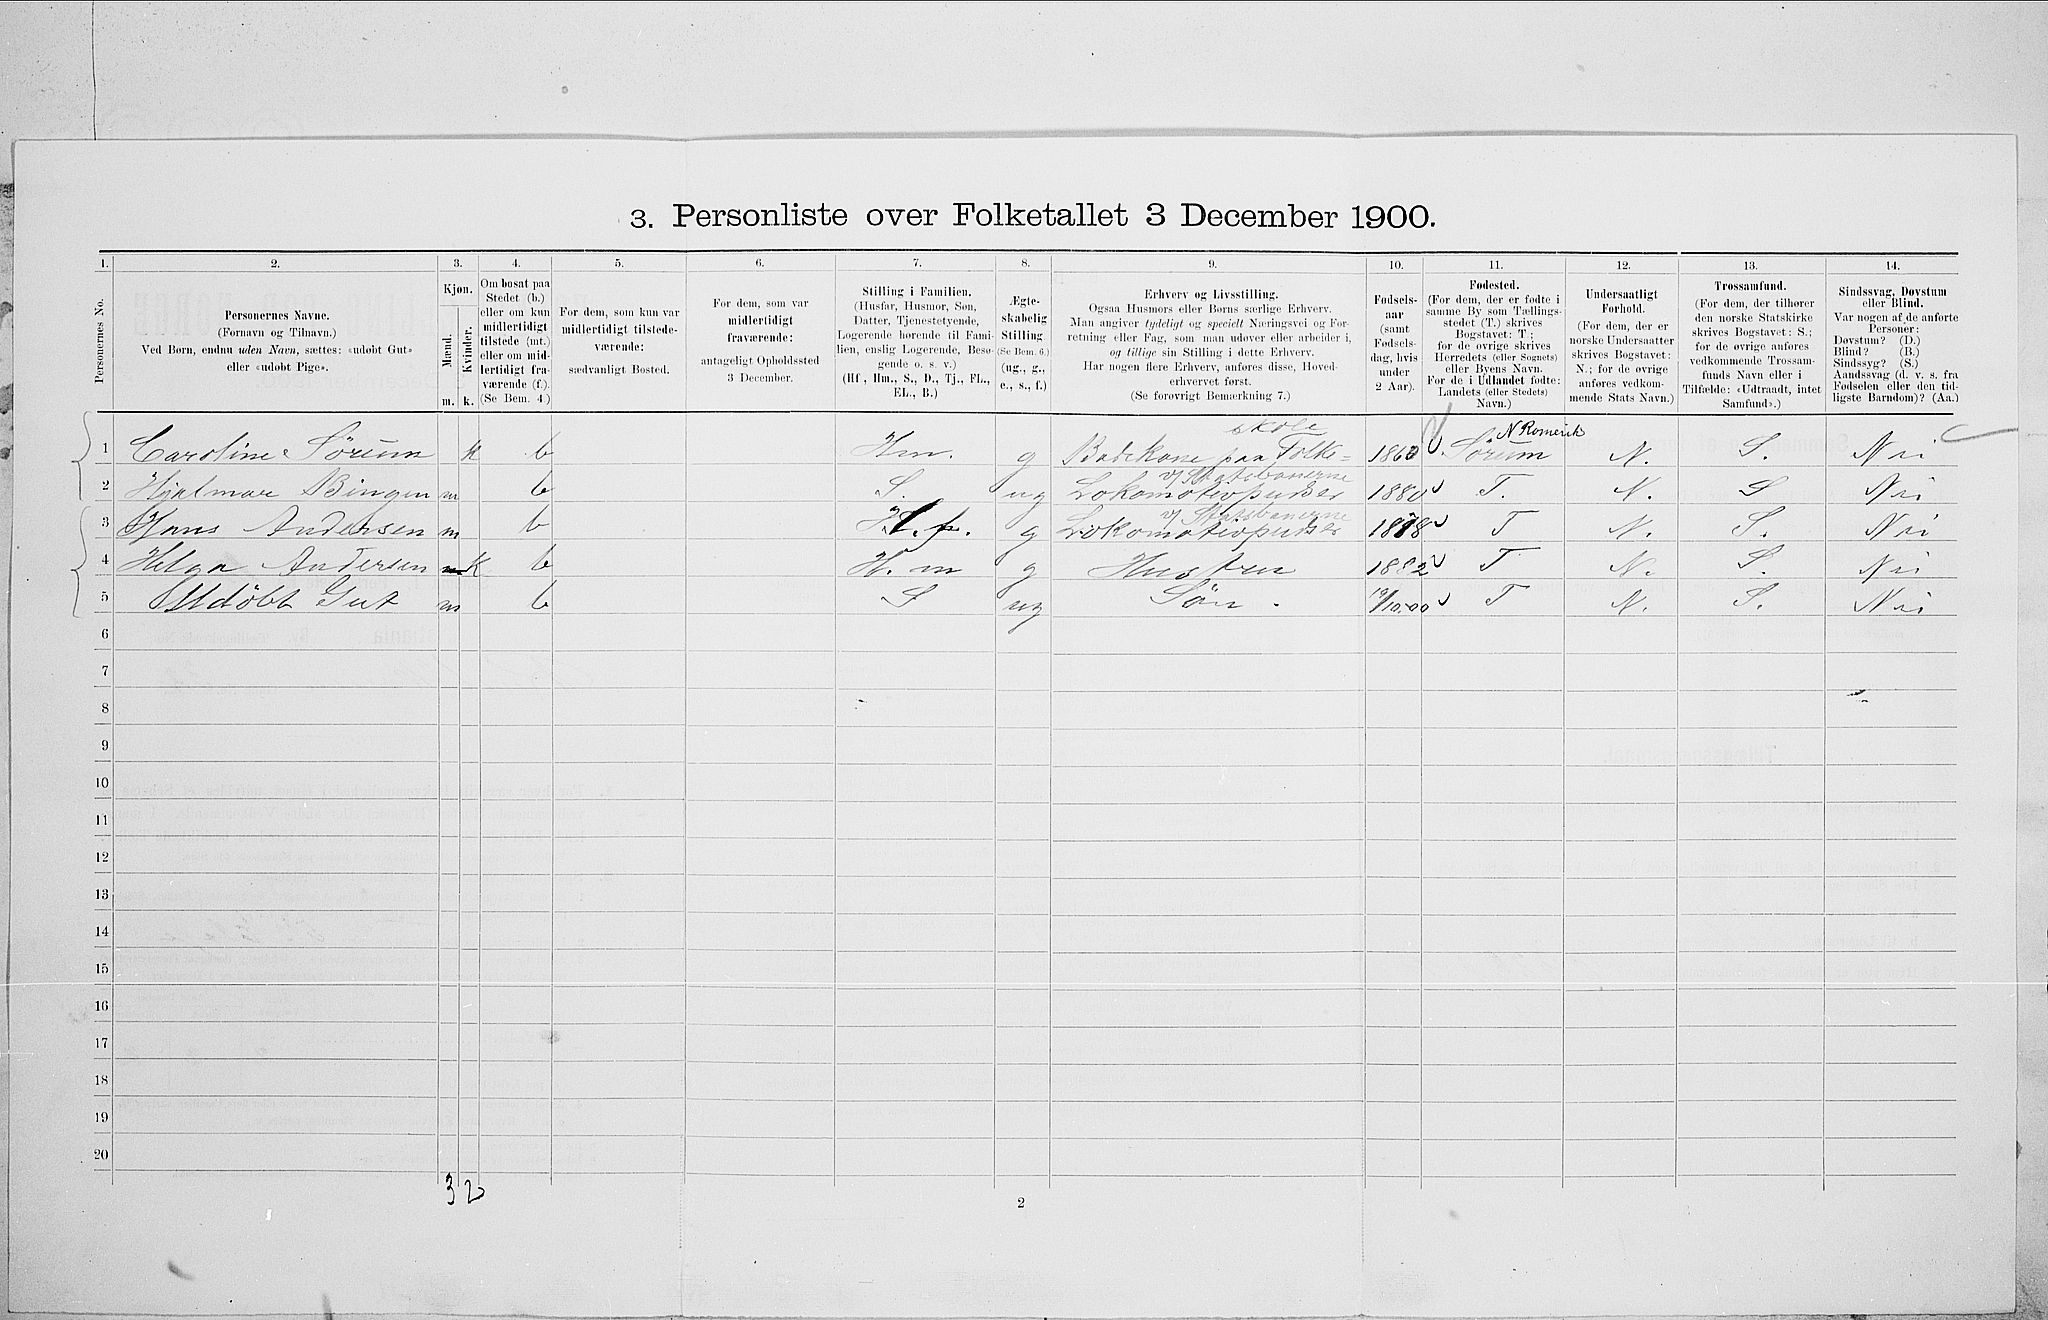 3. Personliste over Folketallet 3 December 1900.
1. 2. 3. 4. 5. 6. 7. 8. 9. 10. 11. 12. 13. 14.
Personernes No.
Personernes Navne.
(Fornavn og Tilnavn.)
Ved Børn, endnu uden Navn, sættes: «udøbt Gut»
eller «udøbt Pige».
Kjøn.
Mænd.
Kvinder.
m. k.
Om bosat paa
Stedet (b.)
eller om kun
midlertidigt
tilstede (mt.)
eller om mid-
lertidigt fra-
værende (f.).
(Se Bem. 4.)
For dem, som kun var
midlertidigt tilstede-
værende:
sædvanligt Bosted.
For dem, som var
midlertidigt
fraværende:
antageligt Opholdssted
3 December.
Stilling i Familien.
(Husfar, Husmor, Søn,
Datter, Tjenestetyende,
Logerende hørende til Fami-
lien, enslig Logerende, Besø-
gende o. s. v.)
(Hf., Hm., S., D., Tj., FL.,
EL., B.)
Ægte-
skabelig
Stilling
(Se Bem. 6.)
(ug., g.,
e., s., f.)
Erhverv og Livsstilling.
Ogsaa Husmors eller Børns særlige Erhverv.
Man angiver tydeligt og specielt Næringsvei og For-
retning eller Fag, som man udøver eller arbeider i,
og tillige sin Stilling i dette Erhverv.
Har nogen flere Erhverv, anføres disse, Hoved-
erhvervet først.
(Se forøvrigt Bemærkning 7.)
Fødsels-
aar
(samt
Fødsels-
dag, hvis
under
2 Aar).
Fødested.
(For dem, der er fødte i
samme By som Tællings-
stedet (T.) skrives
Bogstavet: T;
for de øvrige skrives
Herredets (eller Sognets)
eller Byens Navn.
For de i Udlandet fødte:
Landets (eller Stedets)
Navn.)
Undersaatligt
Forhold.
(For dem, der er
norske Undersaatter
skrives Bogstavet:
N.; for de øvrige
anføres vedkom-
mende Stats Navn.)
Trossamfund.
(For dem, der tilhører
den norske Statskirke
skrives Bogstavet: S.;
for de øvrige anføres
vedkommende Trossam-
funds Navn eller i
Tilfælde: «Udtraadt, intet
Samfund».)
Sindssvag, Døvstum
eller Blind.
Var nogen af de anførte
Personer:
Døvstum? (D.)
Blind? (B.)
Sindssyg? (S.)
Aandssvag (d. v. s. fra
Fødselen eller den tid-
ligste Barndom)? (Aa.)
skole N Romerik
1 Caroline Sørum k b Hm. g Badekone paa Folke= 1860 Sørum N. S. Nei
v/ Statsbanerne
2 Hjalmar Bingen m b S. ug Lokomotivpudser 1880 T. N. S Nei
v/ Statsbanerne
3 Hans Andersen m b H.f. g Lokomotivpudser 1878 T N. S. Nei
4 Helga Andersen k b H.m g Hustru 1882 T N. S. Nei
5 Udøbt Gut m b S ug Søn. 19/10-00 T N. S. Nei
6
7
8
9
10
11
12
13
14
15
16
17
18
19
20
3 2
2